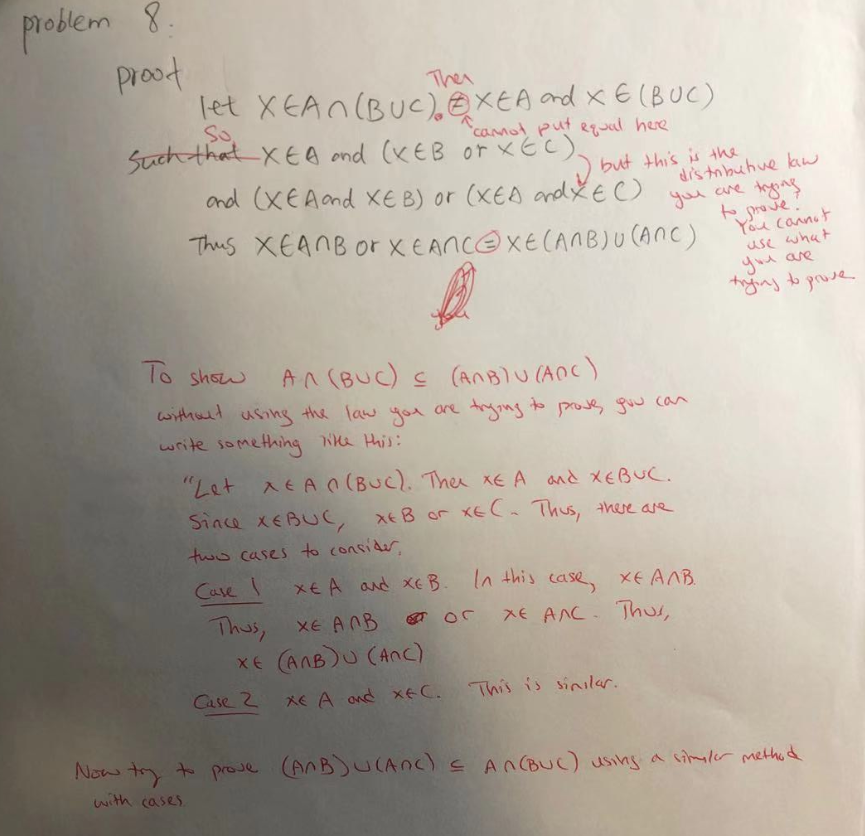 problem 8.
proof
Then
let x∈A∩(B∪C). = x∈A and x∈(B∪C)
cannot put equal here
So
Such that x∈A and (x∈B or x∈C)
but this is the
distributive law
you are trying
to prove.
You cannot
use what
you are
trying to prove
and (x∈A and x∈B) or (x∈A and x∈C)
Thus x∈A∩B or x∈A∩C = x∈(A∩B)∪(A∩C)
To show A∩(B∪C) ⊆ (A∩B)∪(A∩C)
without using the law you are trying to prove, you can
write something like this:
"Let x∈A∩(B∪C). Then x∈A and x∈B∪C.
Since x∈B∪C, x∈B or x∈C. Thus, there are
two cases to consider.
Case 1 x∈A and x∈B. In this case, x∈A∩B.
Thus, x∈A∩B or x∈A∩C. Thus,
x∈(A∩B)∪(A∩C)
Case 2 x∈A and x∈C. This is similar.
Now try to prove (A∩B)∪(A∩C) ⊆ A∩(B∪C) using a similar method
with cases